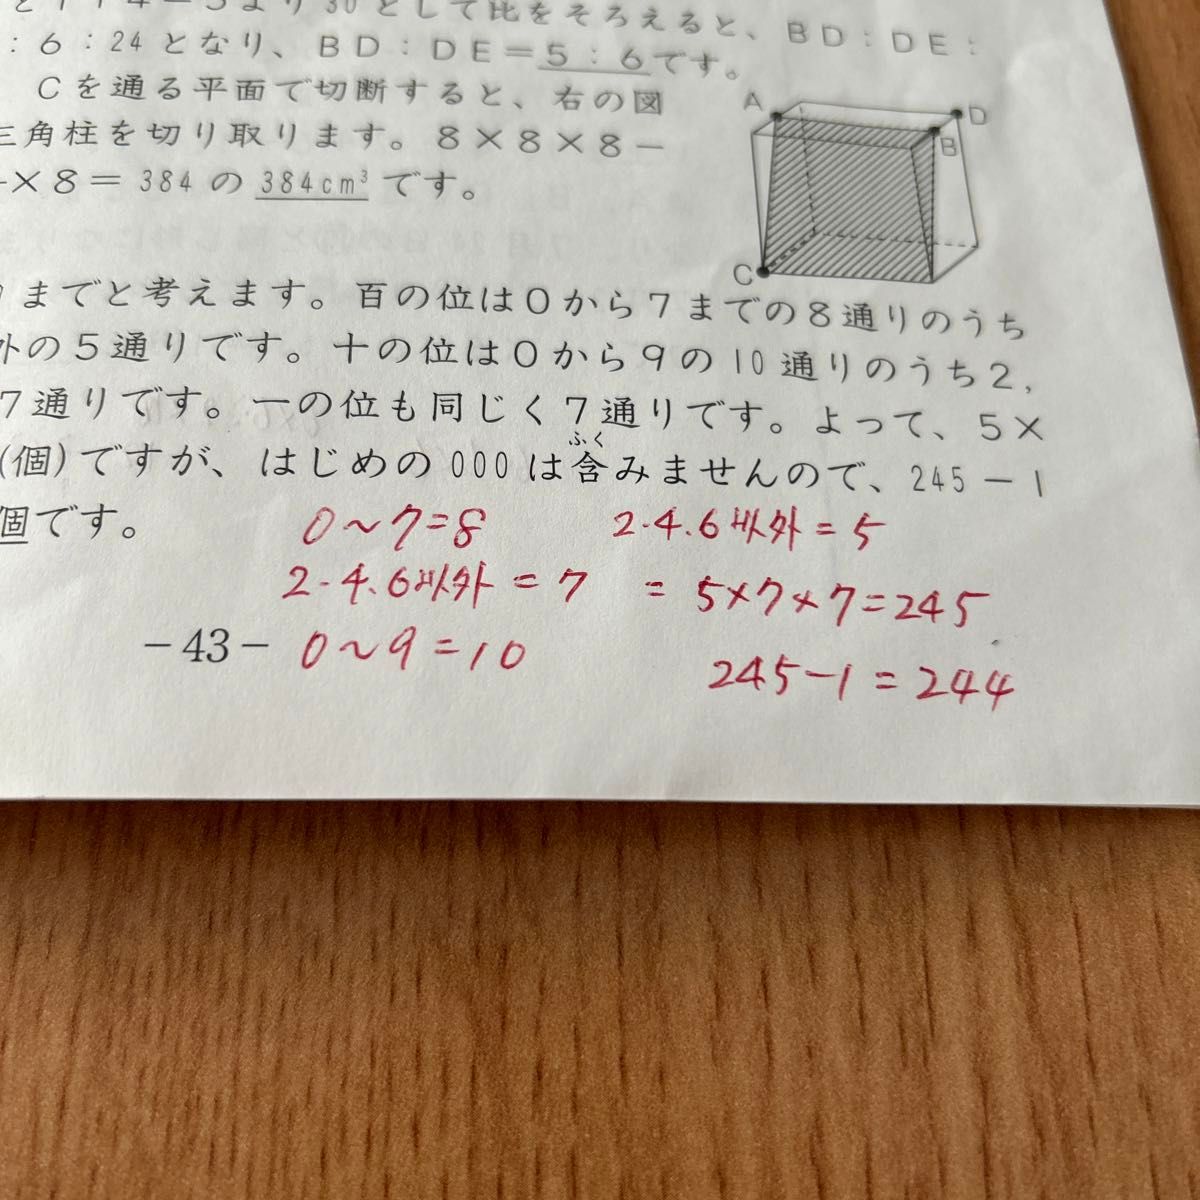 として比をそろえると、BD:DE:
:6:24となり、BD:DE=5:6です。
Cを通る平面で切断すると、右の図
三角柱を切り取ります。8×8×8-
×8=384の384cm³です。
A
D
B
C
までと考えます。百の位は0から7までの8通りのうち
外の5通りです。十の位は0から9の10通りのうち2,
7通りです。一の位も同じく7通りです。よって、5×
(個)ですが、はじめの000は含みませんので、245-1
ふく
個です。
0~7=8 2.4.6以外=5
2.4.6以外=7 =5×7×7=245
-43- 0~9=10
245-1=244